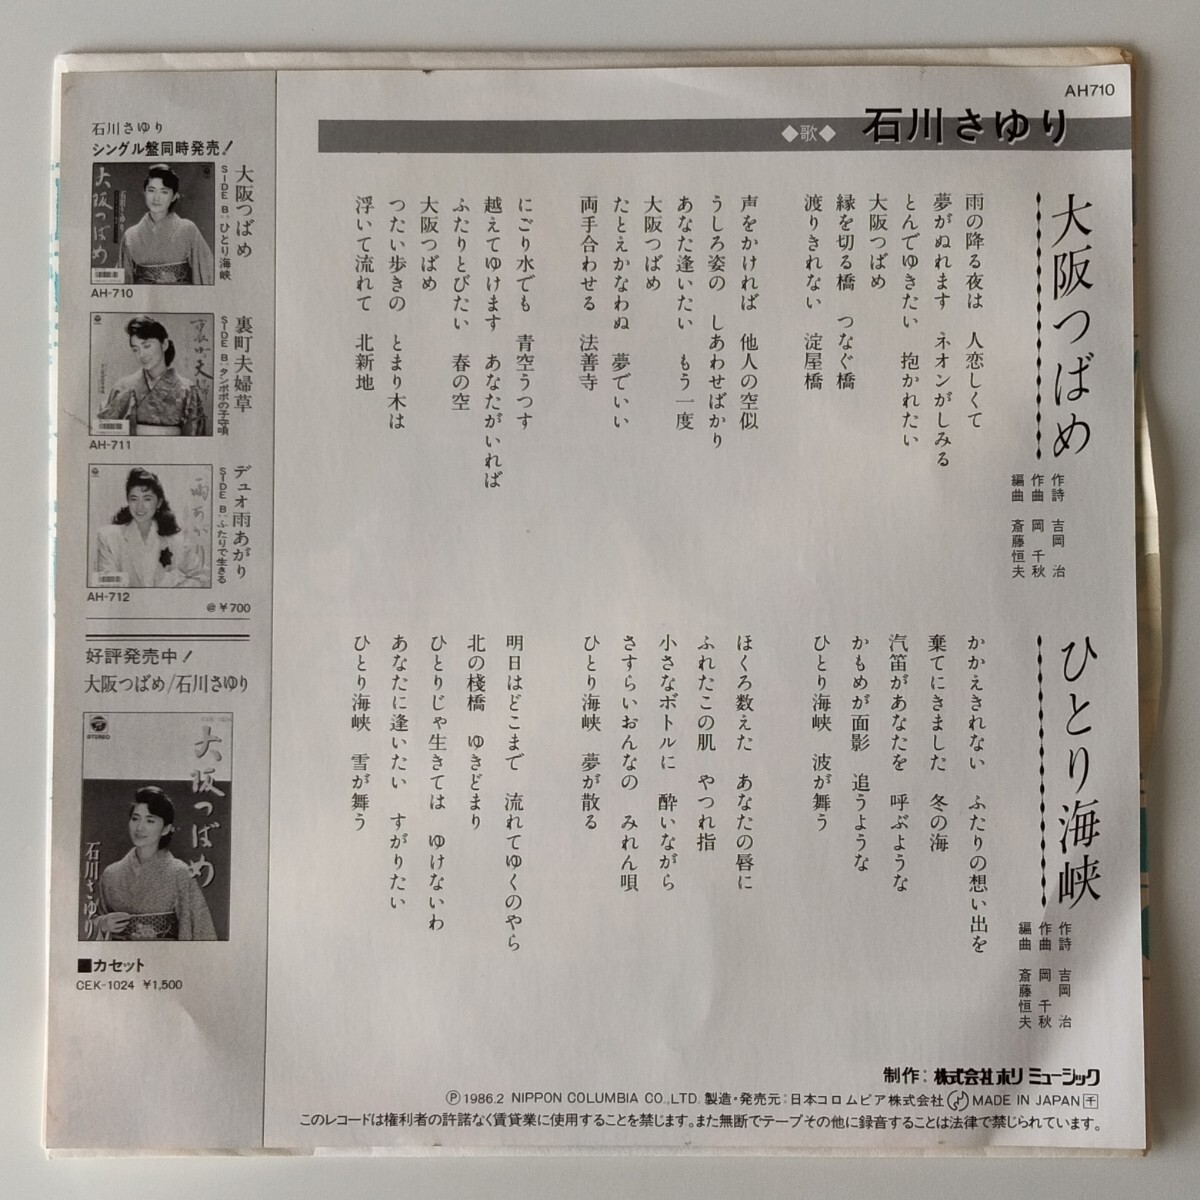 AH710
◆歌◆ 石川さゆり
大阪つばめ
作詩 吉岡 治
作曲 岡 千秋
編曲 斎藤恒夫
雨の降る夜は 人恋しくて
夢がぬれます ネオンがしみる
とんでゆきたい 抱かれたい
大阪つばめ
縁を切る橋 つなぐ橋
渡りきれない 淀屋橋
声をかければ 他人の空似
うしろ姿の しあわせばかり
あなた逢いたい もう一度
大阪つばめ
たとえかなわぬ 夢でいい
両手合わせる 法善寺
にごり水でも 青空うつす
越えてゆけます あなたがいれば
ふたりとびたい 春の空
大阪つばめ
つたい歩きの とまり木は
浮いて流れて 北新地
ひとり海峡
作詩 吉岡 治
作曲 岡 千秋
編曲 斎藤恒夫
かかえきれない ふたりの想い出を
棄てにきました 冬の海
汽笛があなたを 呼ぶような
かもめが面影 追うような
ひとり海峡 波が舞う
ほくろ数えた あなたの唇に
ふれたこの肌 やつれ指
小さなボトルに 酔いながら
さすらいおんなの みれん唄
ひとり海峡 夢が散る
明日はどこまで 流れてゆくのやら
北の棧橋 ゆきどまり
ひとりじゃ生きては ゆけないわ
あなたに逢いたい すがりたい
ひとり海峡 雪が舞う
石川さゆり
シングル盤同時発売!
大阪つばめ
SIDE B:ひとり海峡
大阪つばめ
AH-710
裏町夫婦草
SIDE B:タンポポの子守唄
AH-711
デュオ雨あがり
SIDE B:ふたりで生きる
雨あがり
AH-712
@¥700
好評発売中!
大阪つばめ/石川さゆり
STEREO
大阪つばめ
石川さゆり
■カセット
CEK-1024 ¥1,500
制作:株式会社ホリ ミュージック
Ⓟ1986.2 NIPPON COLUMBIA CO.,LTD. 製造・発売元:日本コロムビア株式会社 MADE IN JAPAN 千
このレコードは権利者の許諾なく賃貸業に使用することを禁じます。また無断でテープその他に録音することは法律で禁じられています。